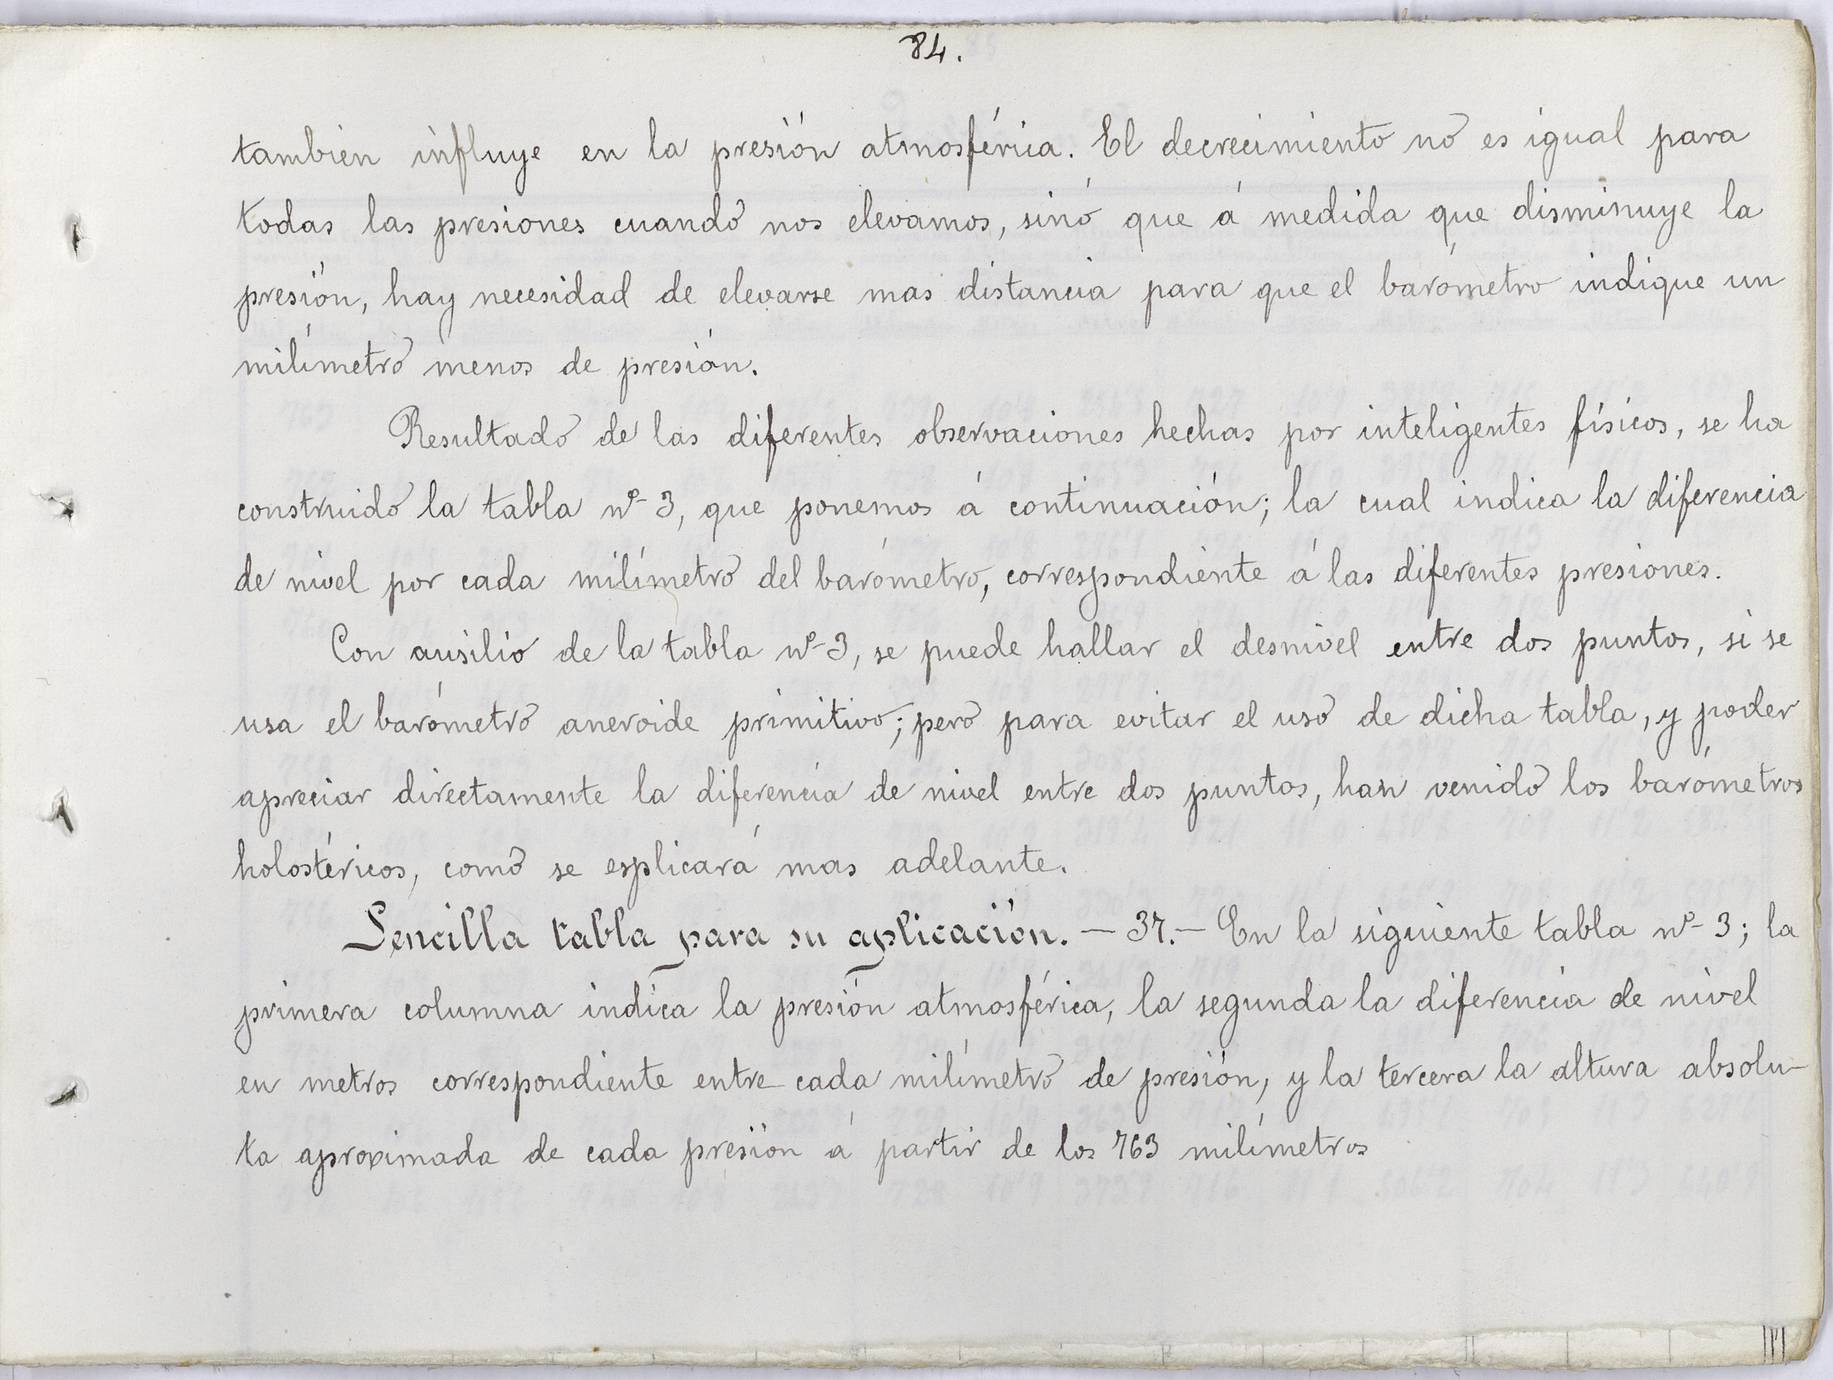 84.
tambien influye en la presión atmosférica. El decrecimiento no es igual para
todas las presiones cuando nos elevamos, sinó que á medida que disminuye la
presión, hay necesidad de elevarse mas distancia para que el barómetro indique un
milímetro menos de presión.
Resultado de las diferentes observaciones hechas por inteligentes físicos, se ha
construido la tabla nº 3, que ponemos á continuación; la cual indica la diferencia
de nivel por cada milímetro del barómetro, correspondiente á las diferentes presiones.
Con ausilio de la tabla nº 3, se puede hallar el desnivel entre dos puntos, si se
usa el barómetro aneroide primitivo; pero para evitar el uso de dicha tabla, y poder
apreciar directamente la diferencia de nivel entre dos puntos, han venido los barómetros
holostéricos, como se esplicará mas adelante.
Sencilla tabla para su aplicación. — 37. — En la siguiente tabla nº 3; la
primera columna indica la presión atmosférica, la segunda la diferencia de nivel
en metros correspondiente entre cada milímetro de presión, y la tercera la altura absolu-
ta aproximada de cada presión á partir de los 763 milímetros